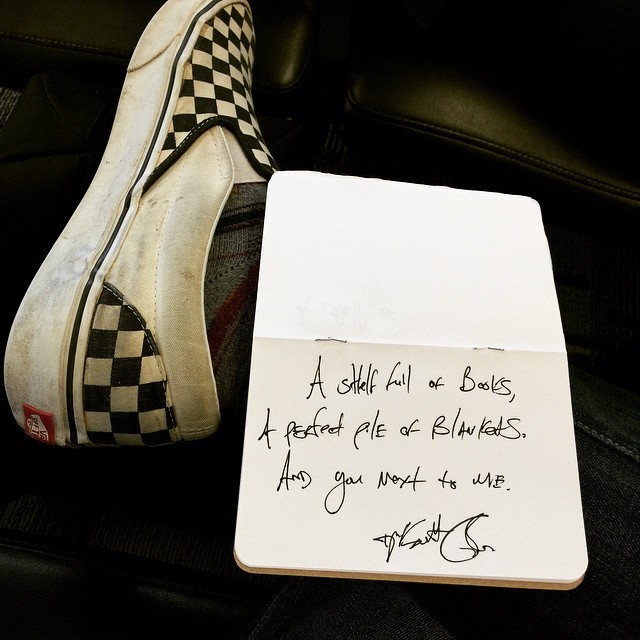 A shelf full of Books,
A perfect pile of Blankets.
And you next to me.